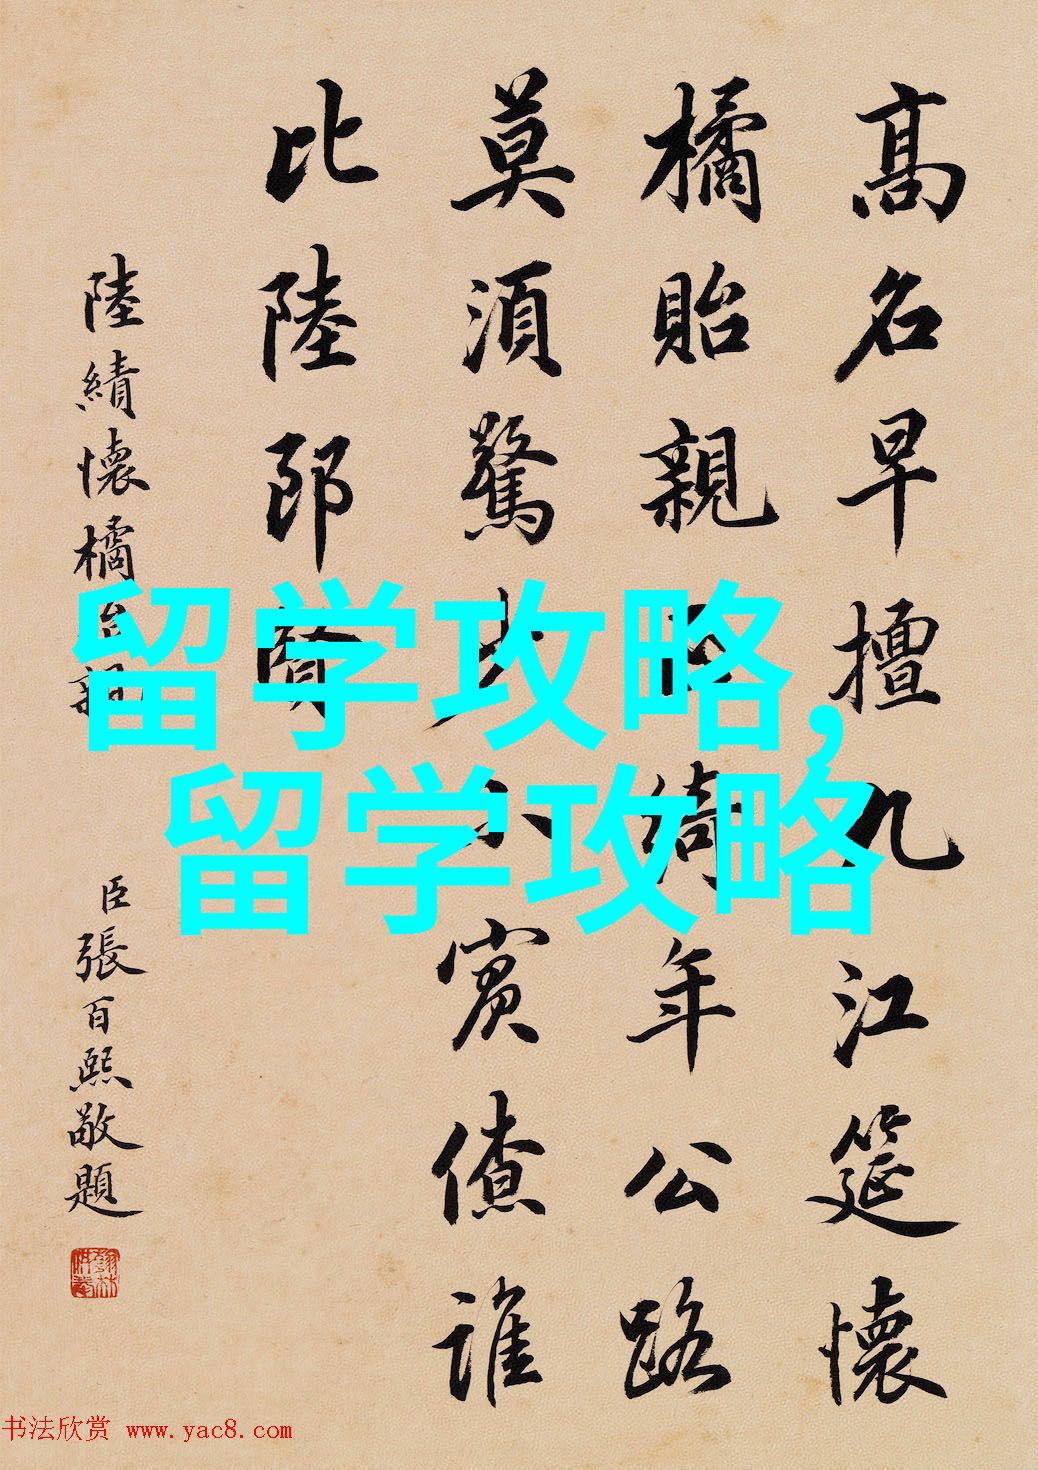 高名早擅九江筵懷
橘貽親綺年公路
莫須驚少小賓僚誰
比陸郎賢
陸績懷橘貽親
臣張百熙敬題
留学攻略,
留学攻略
书法欣赏 www.yac8.com